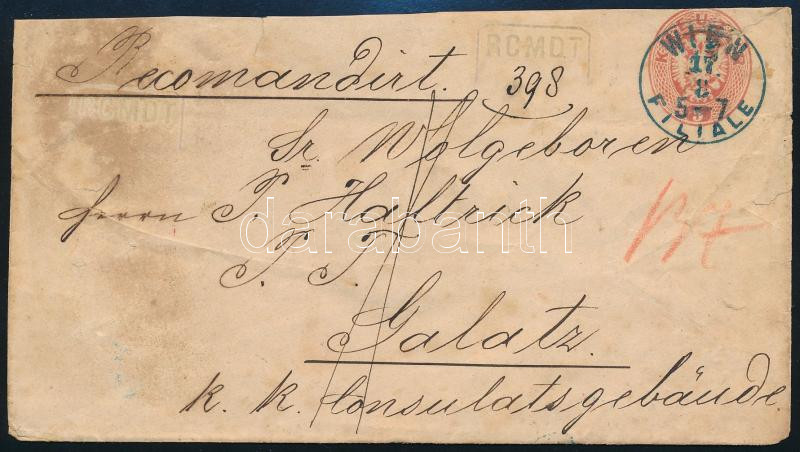 Recomandirt.
RCMDT
398
RCMDT
WIEN
17
8
5-7
FILIALE
Sr. Wolgeboren
Herrn P. Haltrick
T. T.
Galatz.
k. k. Consulatsgebäude
darabanth